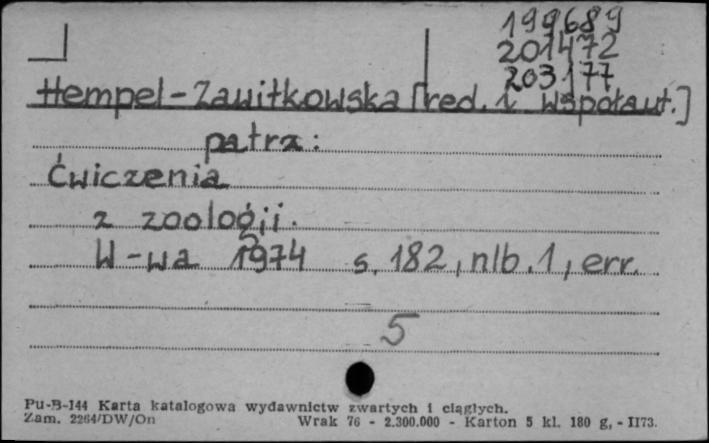 199689
201472
203177
Hempel-Zawitkowska [red. i współaut.]
patrz:
Ćwiczenia
z zoologii.
W-wa 1974 s. 182, nlb. 1, err.
5
Pu-B-144 Karta katalogowa wydawnictw zwartych i ciągłych.
Zam. 2264/DW/On Wrak 76 - 2.300.000 - Karton 5 kl. 180 g, - II73.